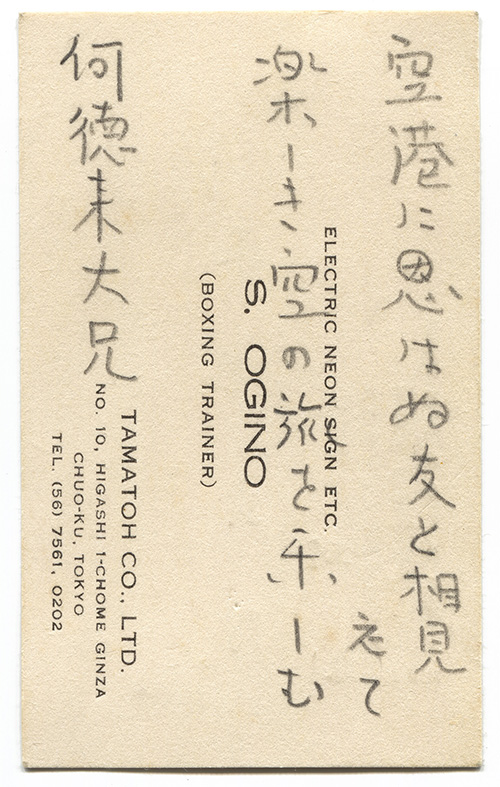 空港に思はぬ友と相見
えて
楽しき空の旅を楽しむ
何德来大兄
ELECTRIC NEON SIGN ETC.
S. OGINO
(BOXING TRAINER)
TAMATOH CO., LTD.
NO. 10, HIGASHI 1-CHOME GINZA
CHUO-KU, TOKYO
TEL. (56) 7561, 0202